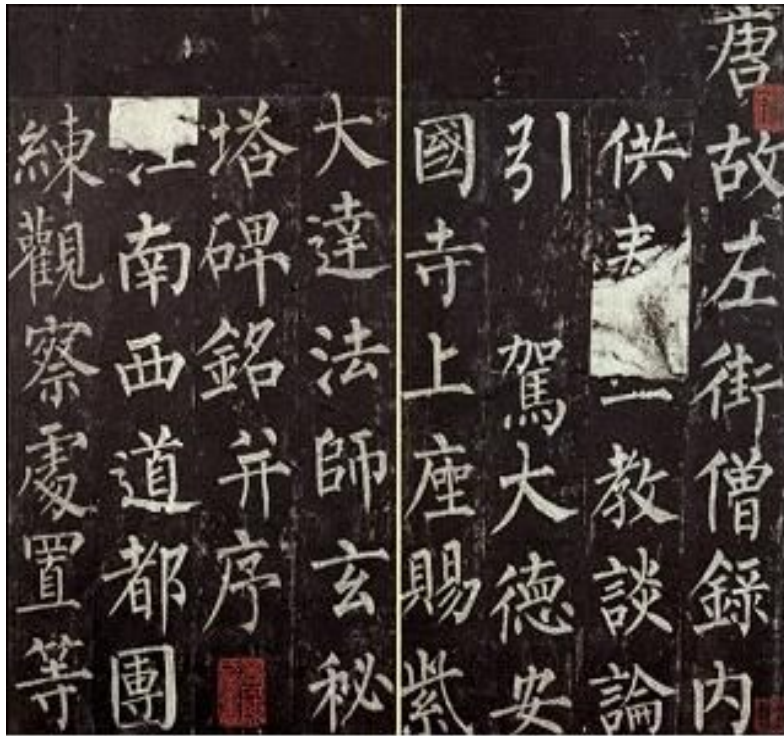 唐故左街僧錄內
供表一教談論
引駕大德安
國寺上座賜紫
大達法師玄秘
塔碑銘并序
江南西道都團
練觀察處置等